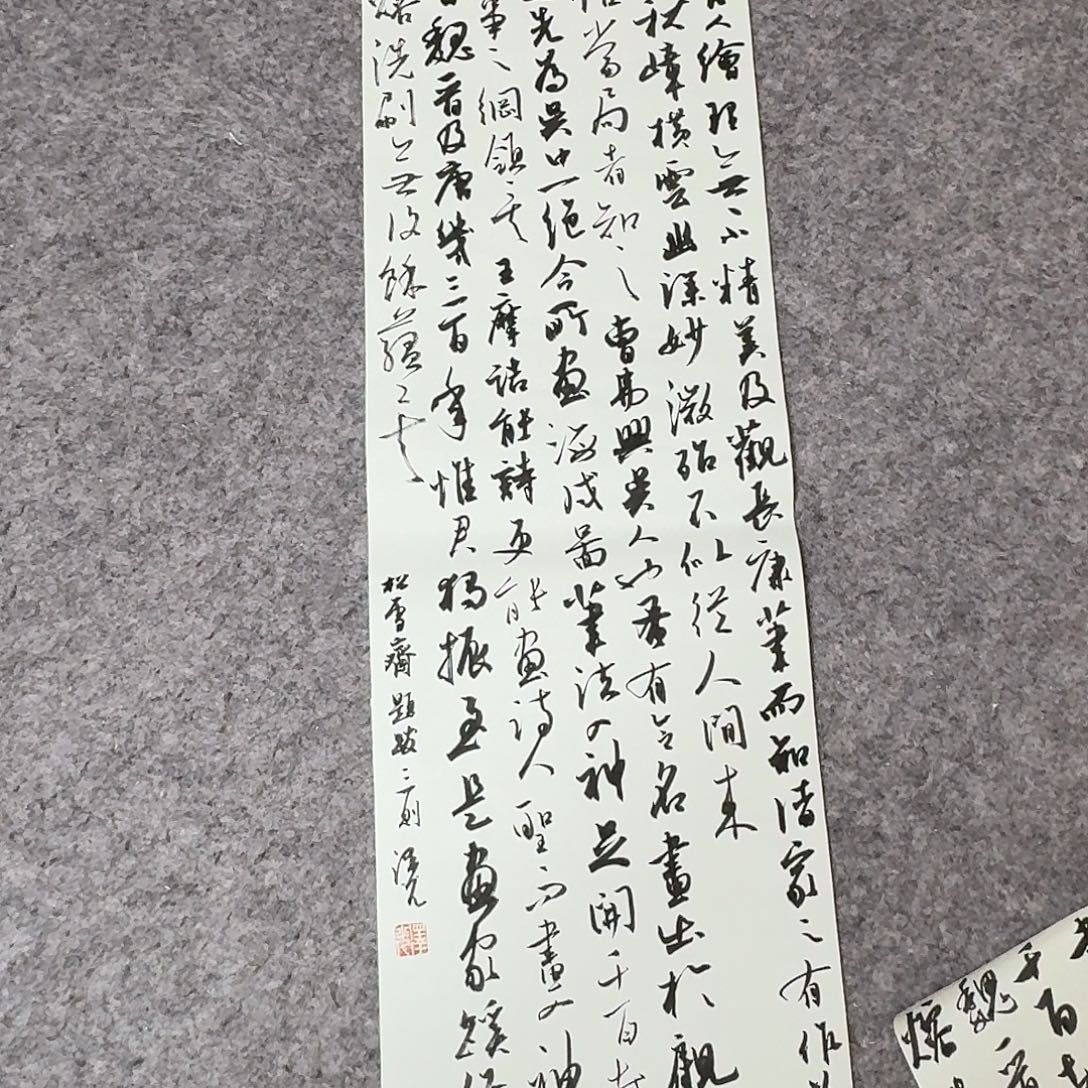 人繪理無不精美及觀長康筆而知諸家之有作
秋嶂橫雲此深妙微殆不似從人間來
當局者知之曹弗興吳人也君有令名畫出於觀
先為吳中一絕今所畫海戍圖筆法入神足開千百
筆之綱領矣王摩詰能詩更能畫詩人聖而畫入神
魏晉及唐幾三百年惟君獨振至是畫家蹊徑
洗刷無復餘蘊矣
松雪齋題跋三則
魏
千百